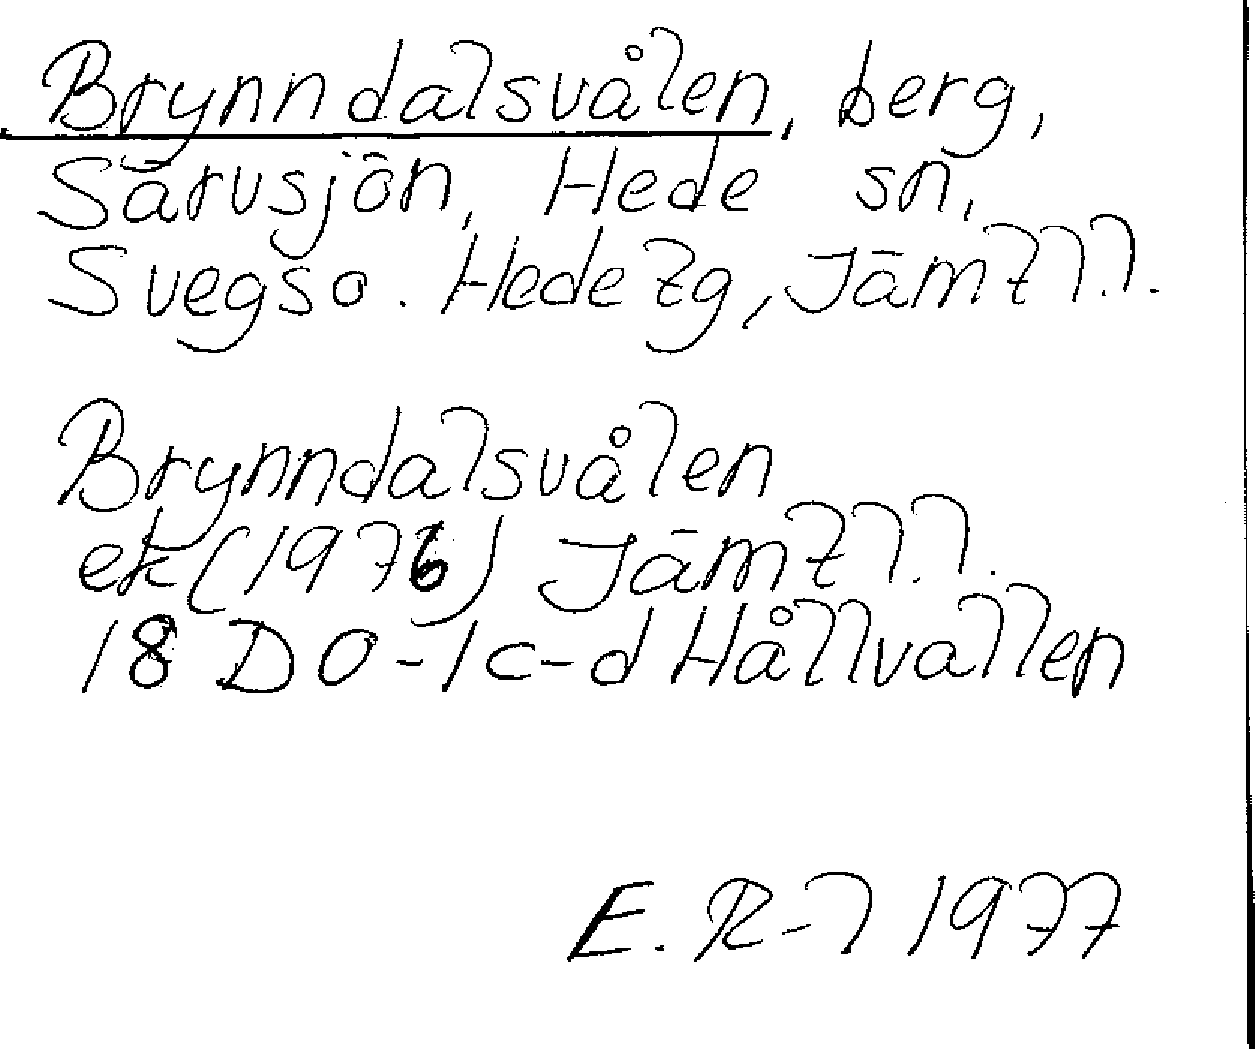 Brynndalsvålen, berg,
Särvsjön, Hede sn,
Svegs o. Hede tg, Jämtl.l.
Brynndalsvålen
ek (1976) Jämtl.l.
18 D 0-1 c-d Hållvallen
E. R-l 1977